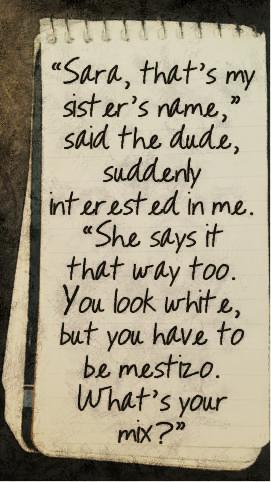 “Sara, that’s my
sister’s name,”
said the dude,
suddenly
interested in me.
“She says it
that way too.
You look white,
but you have to
be mestizo.
What’s your
mix?”